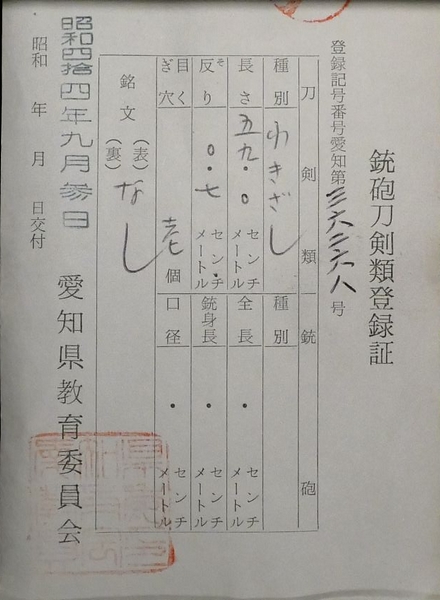 銃砲刀剣類登録証
登録記号番号愛知第 号
刀剣類 銃砲
種別 わきざし 種別
長さ 五九・〇 センチメートル 全長 ・ センチメートル
反り 〇・七 センチメートル 銃身長 ・ センチメートル
目くぎ穴 壱個 口径 ・ センチメートル
銘文 (表) (裏) なし
昭和四拾四年九月参日
昭和 年 月 日交付
愛知県教育委員会